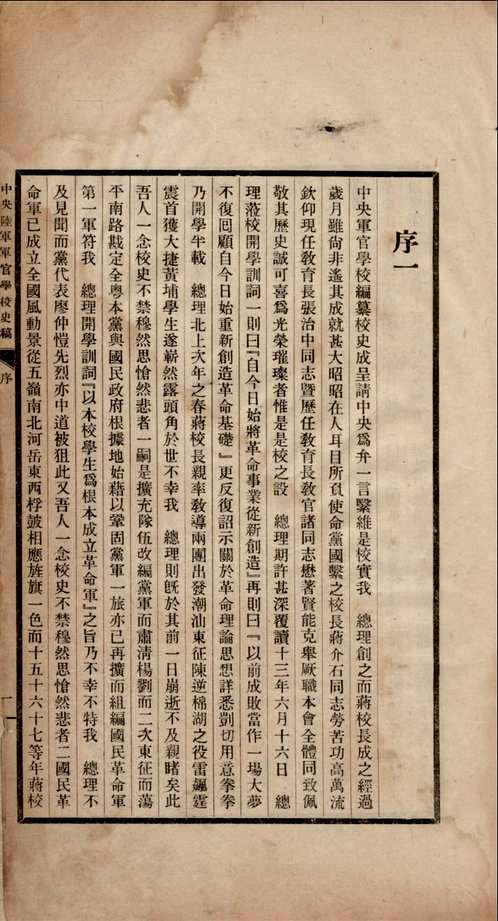 序一
中央軍官學校編纂校史成呈請中央爲弁一言繫維是校實我　總理創之而蔣校長成之經過
歲月雖尙非遙其成就甚大昭昭在人耳目所負使命黨國繫之校長蔣介石同志勞苦功高萬流
欽仰現任敎育長張治中同志暨歷任敎育長敎官諸同志懋著賢能克舉厥職本會全體同致佩
敬其歷史誠可喜爲光榮璀璨者惟是是校之設　總理期許甚深覆讀十三年六月十六日　總
理蒞校開學訓詞一則曰『自今日始將革命事業從新創造』再則曰『以前成敗當作一場大夢
不復回顧自今日始重新創造革命基礎』更反復詔示關於革命理論思想詳悉剴切用意拳拳
乃開學半載　總理北上次年之春蔣校長親率敎導兩團出發潮汕東征陳逆棉湖之役雷飈霆
震首獲大捷黃埔學生遂嶄然露頭角於世不幸我　總理則旣於其前一日崩逝不及親睹矣此
吾人一念校史不禁穆然思愴然悲者一嗣是擴充隊伍改編黨軍而肅淸楊劉而二次東征而蕩
平南路戡定全粤本黨與國民政府根據地始藉以鞏固黨軍一旅亦已再擴而組編國民革命軍
第一軍符我　總理開學訓詞『以本校學生爲根本成立革命軍』之旨乃不幸不特我　總理不
及見聞而黨代表廖仲愷先烈亦中道被狙此又吾人一念校史不禁穆然思愴然悲者二國民革
命軍已成立全國風動景從五嶺南北河岳東西桴鼓相應旌旗一色而十五十六十七等年蔣校
中央陸軍軍官學校史稿
序
一